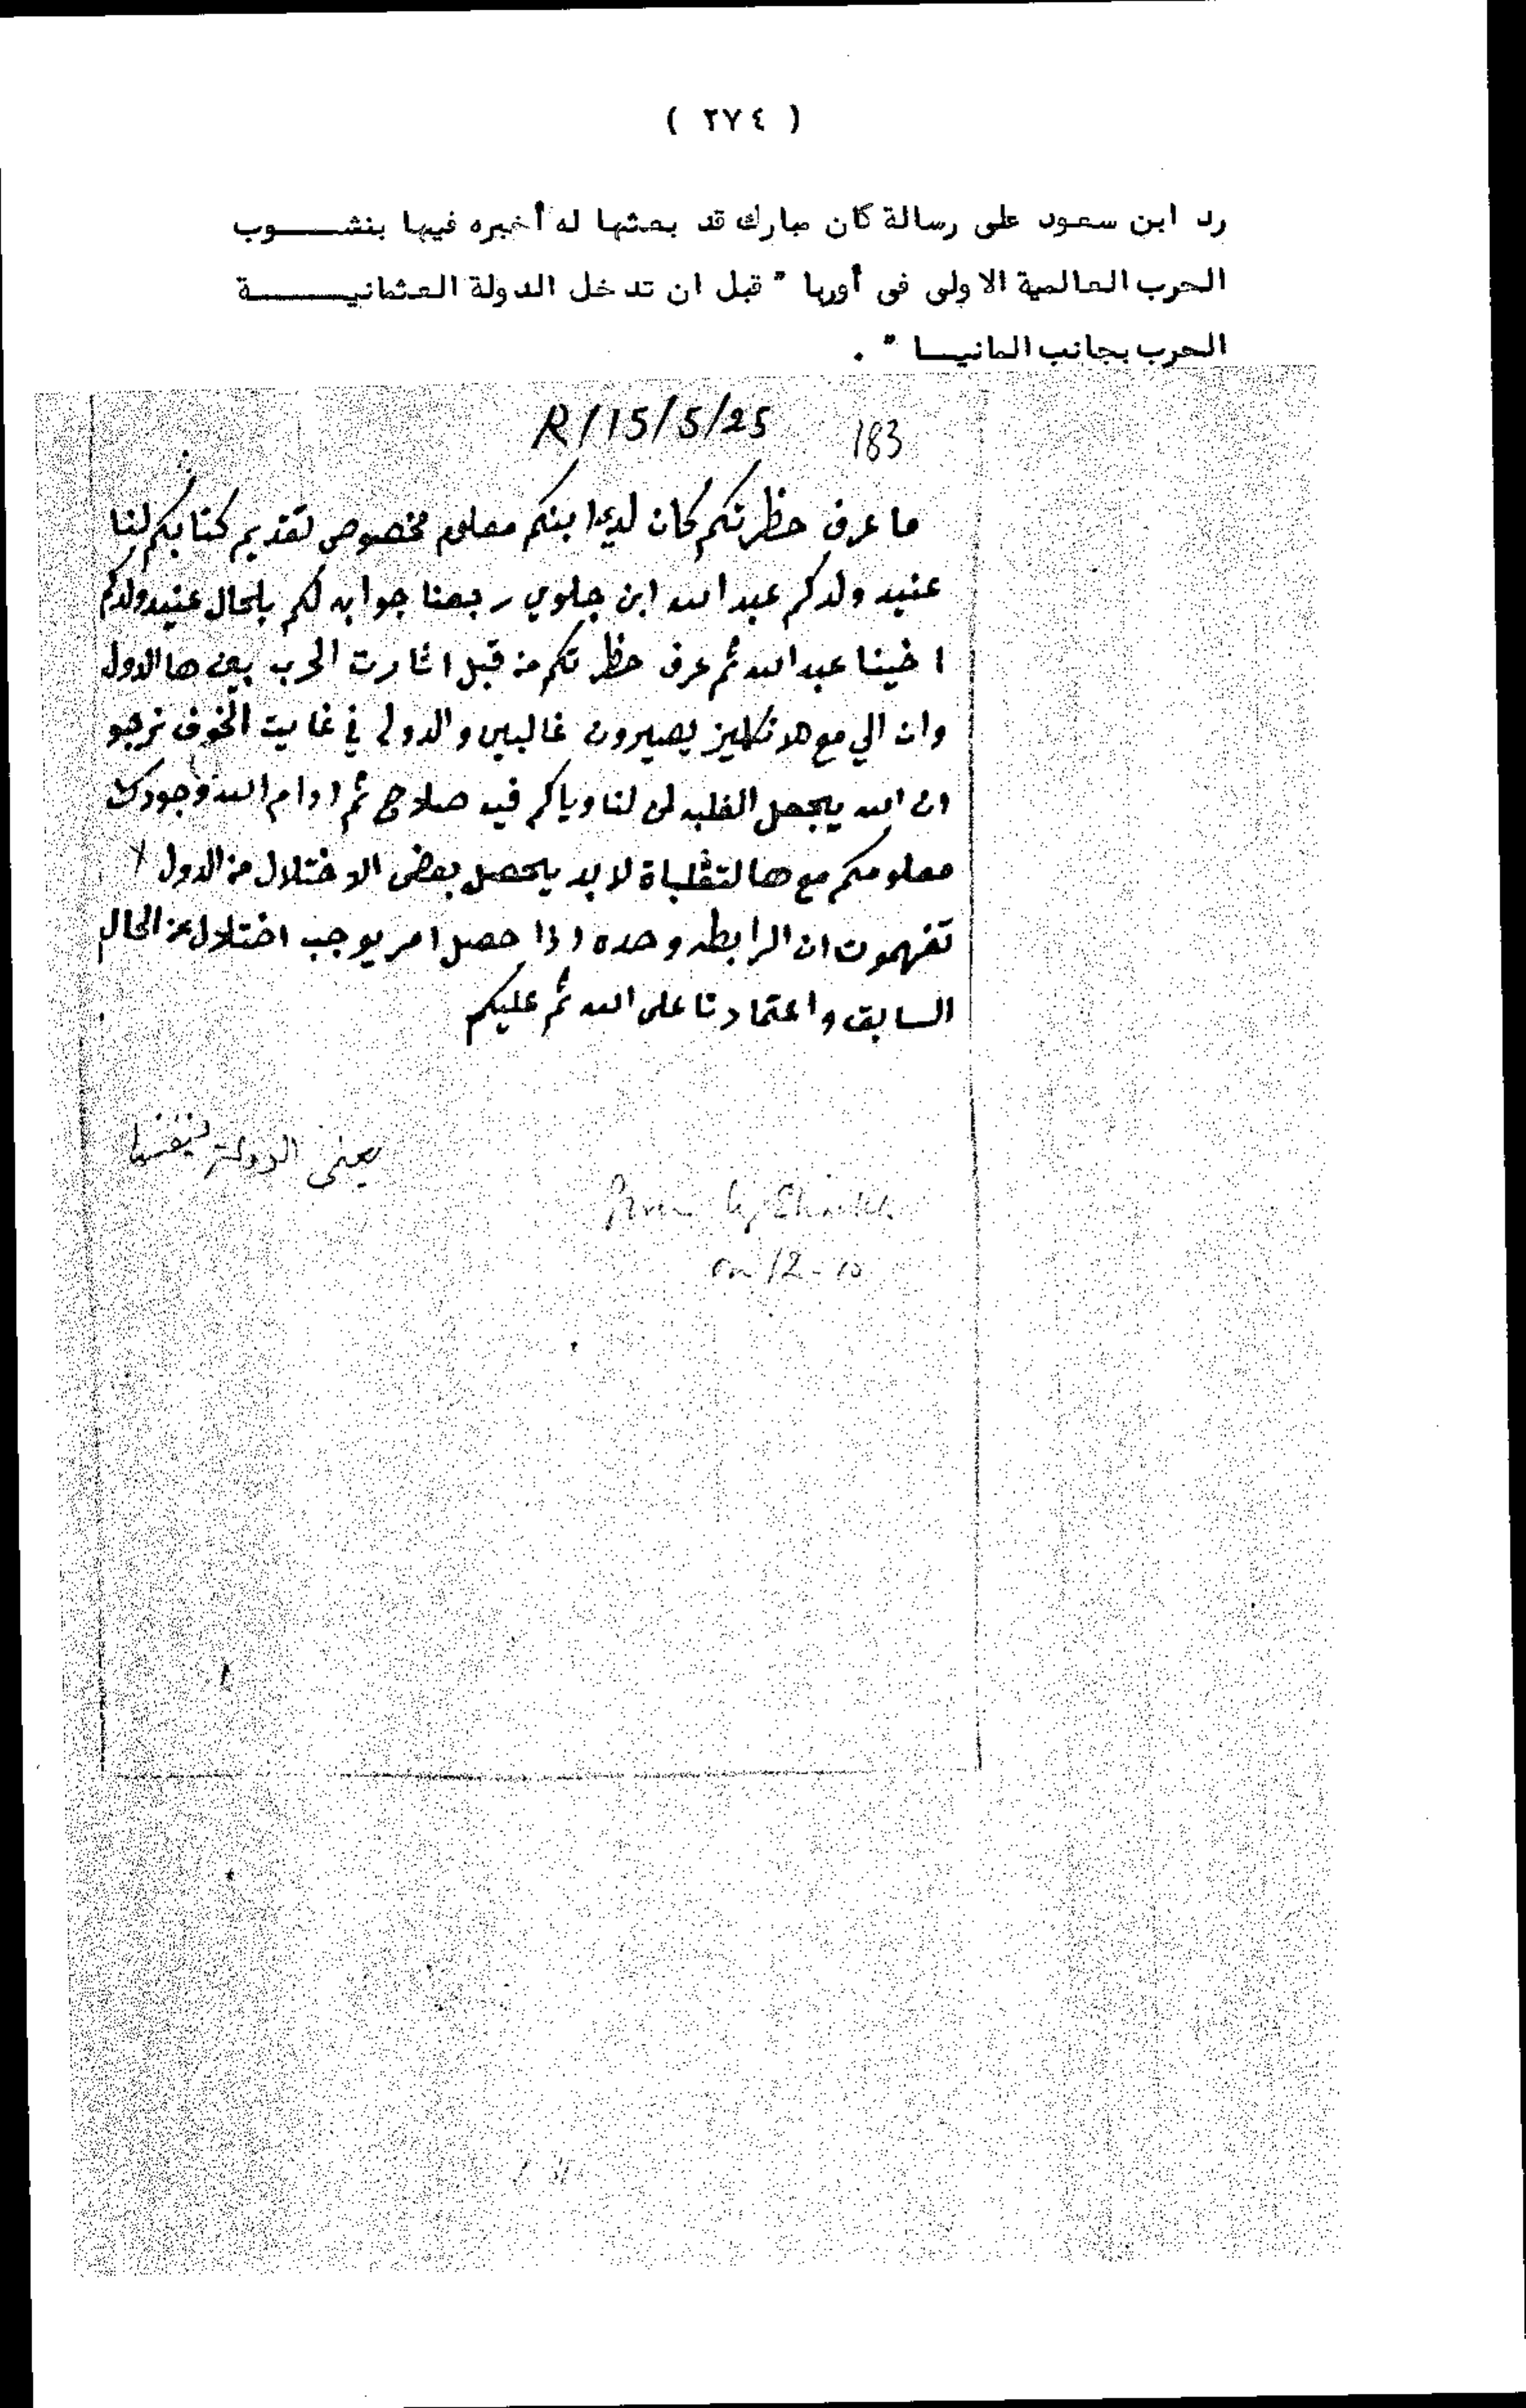 ( ٢٧٤ )
رد ابن سعود على رسالة كان مبارك قد بعثها له أخبره فيها بنشـــوب
الحرب العالمية الاولى فى أوربا " قبل ان تدخل الدولة العثمانيـــــة
الحرب بجانب المانيــا " .
R/15/5/25 183
ما عرف حظرتكم كان لدى ابنكم معلوم مخصوص لتقديم كتابكم لنا
عنيد ولدكم عبد الله ابن جلوي رجعنا جوابه لكم بلحال عنيد ولدكم
اخينا عبد الله ثم عرف حظرتكم من قبل اثارت الحرب بين هالدول
وان الي مع هو نكليز يصيرون غالبين والدولى في غايت الخوف نرجو
ان الله يجعل الغلبه لمن لنا وياكم فيه صلاح ثم ادام الله وجودك
معلومكم مع هالتقلباة لا بد يحصل بعض الاختلال من الدول
تفهمون ان الرابطه وحده اذا حصل امر يوجب اختلال عن الحال
السابق واعتمادنا على الله ثم عليكم
يعني الدولة بنفسها
by Shaikh
on 12-10